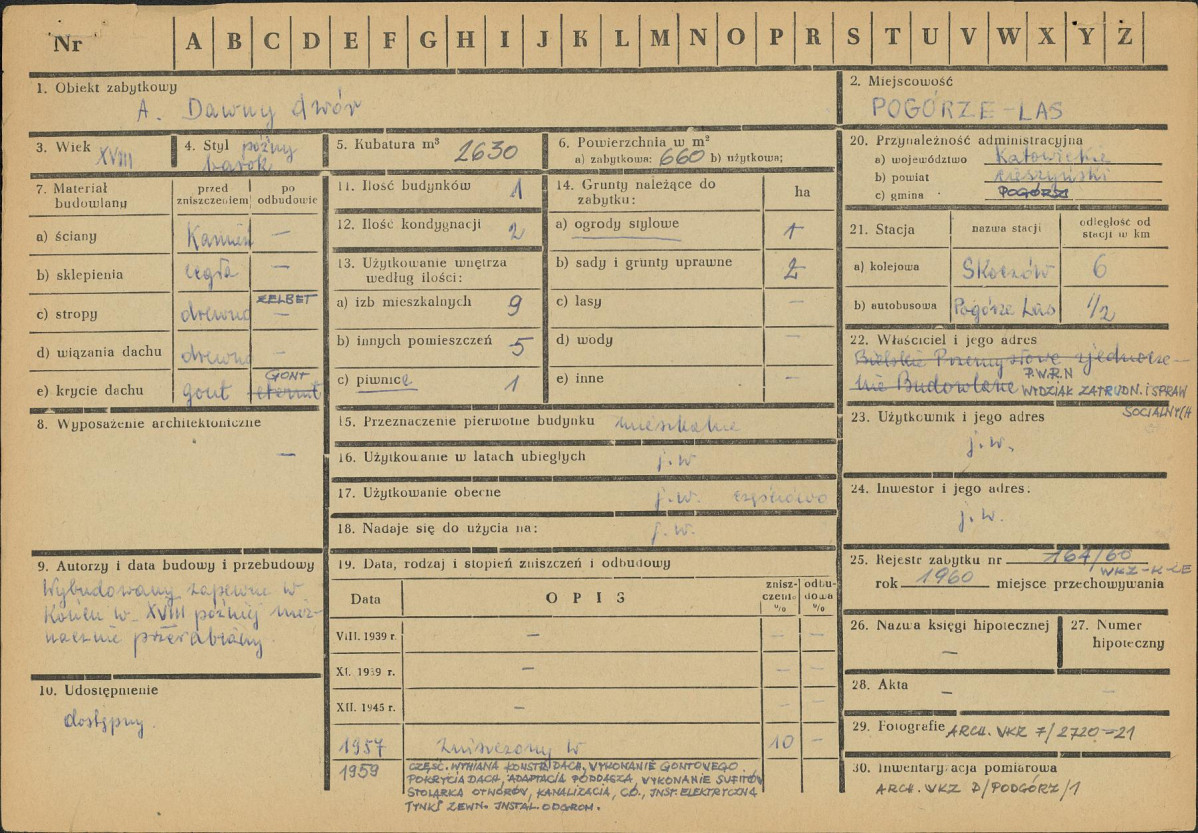 Nr A B C D E F G H I J K L M N O P R S T U V W X Y Ż
1. Obiekt zabytkowy
A. Dawny dwór
2. Miejscowość
POGÓRZE-LAS
3. Wiek XVIII
4. Styl późny
barok
5. Kubatura m³ 2630
6. Powierzchnia w m²
a) zabytkowa: 660 b) użytkowa;
20. Przynależność administracyjna
a) województwo Katowickie
b) powiat cieszyński
c) gmina POGÓRZE
7. Materiał budowlany
przed zniszczeniem
po odbudowie
a) ściany Kamień —
b) sklepienia cegła —
c) stropy drewno ŻELBET —
d) wiązania dachu drewno —
e) krycie dachu gont GONT eternit
8. Wyposażenie architektoniczne
—
9. Autorzy i data budowy i przebudowy
Wybudowany zapewne w
końcu w. XVIII później niez-
nacznie przerabiany
10. Udostępnienie
dostępny.
11. Ilość budynków 1
12. Ilość kondygnacji 2
13. Użytkowanie wnętrza
według ilości:
a) izb mieszkalnych 9
b) innych pomieszczeń 5
c) piwnice 1
14. Grunty należące do
zabytku: ha
a) ogrody stylowe 1
b) sady i grunty uprawne 2
c) lasy —
d) wody —
e) inne —
15. Przeznaczenie pierwotne budynku mieszkalne
16. Użytkowanie w latach ubiegłych j.w
17. Użytkowanie obecne j.w. częściowo
18. Nadaje się do użycia na: j.w.
19. Data, rodzaj i stopień zniszczeń i odbudowy
Data OPIS znisz-czenie % odbu-dowa %
VIII. 1939 r. — — —
XI. 1939 r. — — —
XII. 1945 r. — — —
1957 zniszczony w 10 —
1959 CZĘŚC. WYMIANA KONSTR. DACH, WYKONANIE GONTOWEGO
POKRYCIA DACH, ADAPTACJA PODDASZA, WYKONANIE SUFITÓW
STOLARKA OTWORÓW, KANALIZACJA, C.O., INST. ELEKTRYCZNA
TYNKI ZEWN. INSTAL. ODGROM.
21. Stacja nazwa stacji odległość od
stacji w km
a) kolejowa Skoczów 6
b) autobusowa Pogórze Las 1/2
22. Właściciel i jego adres
Bielskie Przemysłowe Zjednocze-
nie Budowlane P.W.R.N
WYDZIAŁ ZATRUDN. I SPRAW
SOCJALNYCH
23. Użytkownik i jego adres
j.w.
24. Inwestor i jego adres:
j.w.
25. Rejestr zabytku nr 164/60
WKZ-K-CE
rok 1960 miejsce przechowywania
26. Nazwa księgi hipotecznej
—
27. Numer
hipoteczny
28. Akta — —
29. Fotografie ARCH. WKZ 7/2720-21
30. Inwentaryzacja pomiarowa
ARCH. WKZ D/PODGÓRZ/1